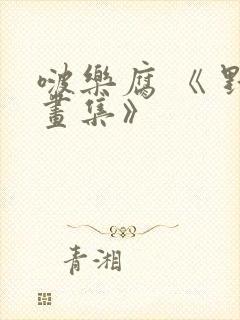 啵樂腐《
畫集》
青湘